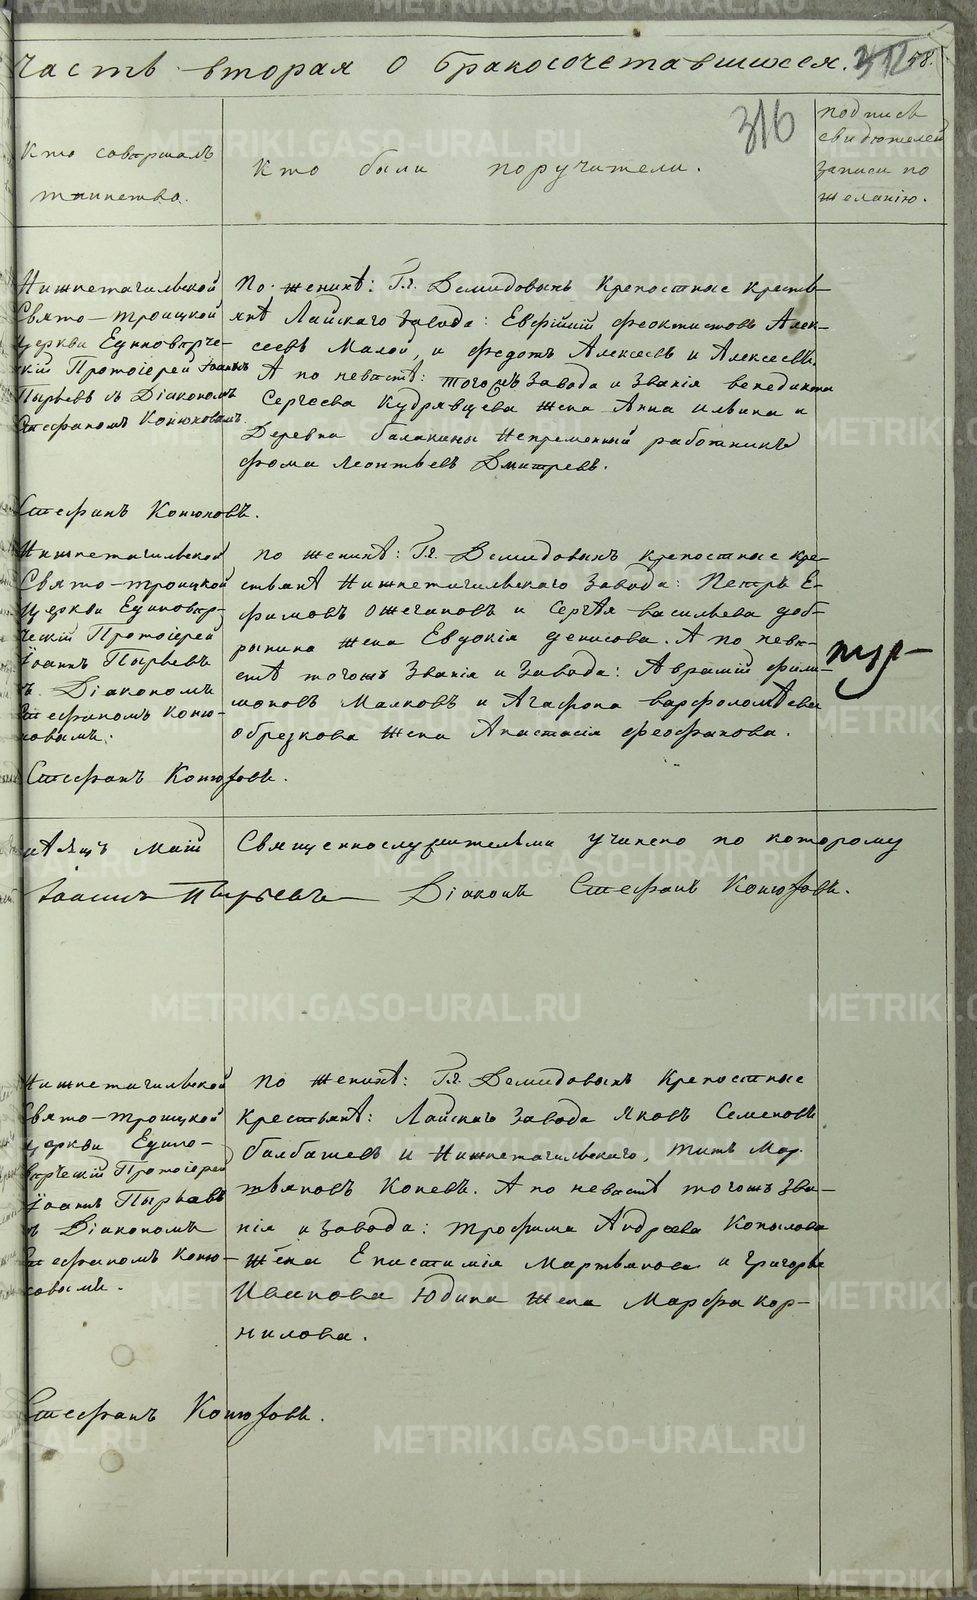 Часть вторая о бракосочетавшихся. 58.
316
Кто совершалъ
таинство.
Кто были поручители.
подпись
свидѣтелей
записи по
желанію.
Нижнетагильской
Свято-Троицкой
церкви Единовѣрче-
скій Протоіерей Іоаннъ
Пырьевъ съ Діакономъ
Стефаномъ Конюховымъ.
Стефанъ Конюховъ.
По женихѣ: Гг. Демидовыхъ крепостные кресть-
янѣ Лайскаго завода: Евфимій Феоктистовъ Алек-
сеевъ Малой, и Федотъ Алексеевъ и Алексеевъ.
А по невѣстѣ: тогожъ завода и званія Венедикта
Сергеева Кудрявцева жена Анна Ильина и
Деревни Балакины Непременный работникъ
Фома Леонтьевъ Дмитревъ.
Нижнетагильской
Свято-Троицкой
церкви Единовѣр-
ческій Протоіерей
Іоаннъ Пырьевъ
съ Діакономъ
Стефаномъ Коню-
ховымъ.
Стефанъ Конюховъ.
по женихѣ: Гг. Демидовыхъ крепостные кре-
стьянѣ Нижнетагильскаго завода: Петръ Е-
фимовъ Ожегановъ и Сергѣя Васильева доб-
рынина жена Евдокія денисова. А по невѣ-
стѣ тогожъ званія и завода: Аврамій Фили-
моновъ Малковъ и Агафона Варфоломѣева
обрезкова жена Анастасія Феофанова.
мѣсяцъ Маій Священнослужителями учинено по которому
Іоаннъ Пырьевъ Діаконъ Стефанъ Конюховъ.
Нижнетагильской
Свято-Троицкой
церкви Едино-
вѣрческій Протоіерей
Іоаннъ Пырьевъ
съ Діакономъ
Стефаномъ Коню-
ховымъ.
Стефанъ Конюховъ.
по женихѣ: Гг. Демидовыхъ крепостные
крестьянѣ: Лайскаго завода Яковъ Семеновъ
балбашевъ и Нижнетагильскаго, Титъ Мар-
тьяновъ Коневъ. А по невѣстѣ тогожъ зва-
нія и завода: Трофима Андреева Копылова
жена Епистимія Мартьянова и Григорья
Иванова Юдина жена Марфа Кор-
нилова.
METRIKI.GASO-URAL.RU